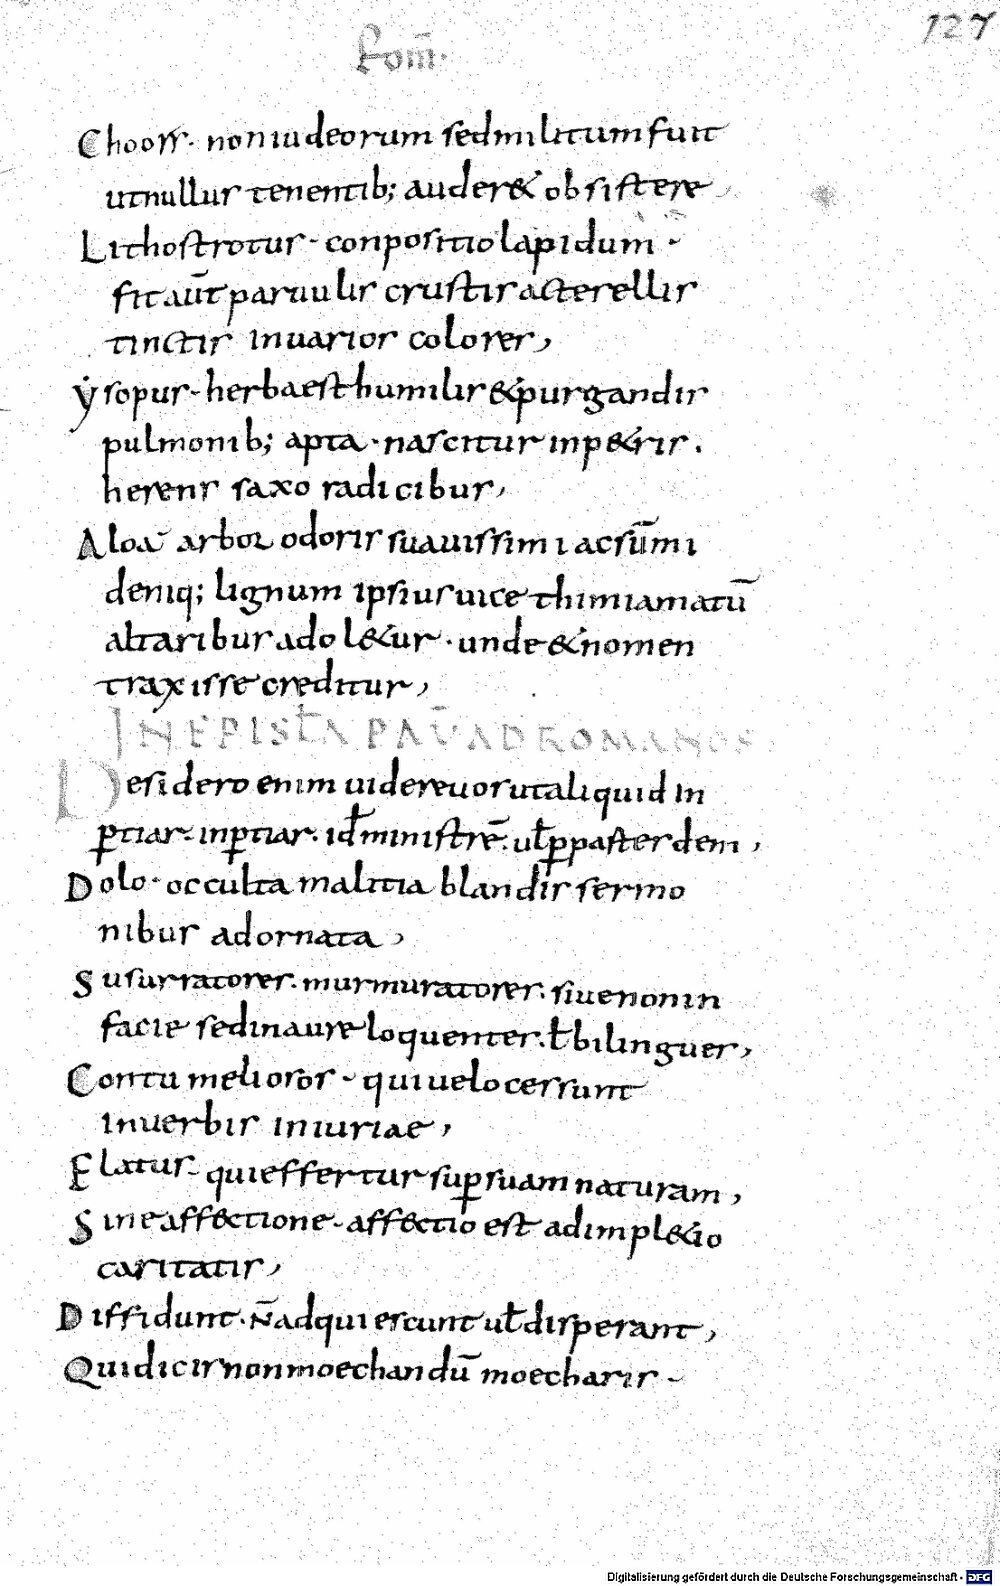 Rom̄.
127
Choors. non iudeorum sed militum fuit
ut nullus tenentib; auder& obsistere
Lithostrotus. conpositio lapidum.
fit aut̄ paruulis crustis ac terellis
tinctis in uarios colores,
ysopus. herba est humilis & purgandis
pulmonib; apta. nascitur in p&ris.
herens saxo radicibus,
Aloa arbor odoris suauissimi ac sūmi
deniq; lignum ipsius uice thimiamatū
altaribus adol&ur. unde & nomen
traxisse creditur,
IN EPISTŁA PAŪ AD ROMANOS
Desidero enim uidere uos ut aliquid in
ꝑtiar. inꝑtiar. id̄ ministrē. uł ꝓpaster dem,
Dolo. occulta malitia blandis sermo
nibus adornata,
Susurratores. murmuratores. siue non in
facie sed in aure loquentes. ł bilingues,
Contumeliosos. qui ueloces sunt
in uerbis iniuriae,
Elatus. qui effertur suꝑ suam naturam,
Sine aff&ctione. aff&ctio est adimpl&io
caritatis,
Diffidunt. n̄ adquiescunt uł disperant,
Qui dicis non moechandū moecharis.
Digitalisierung gefördert durch die Deutsche Forschungsgemeinschaft - DFG